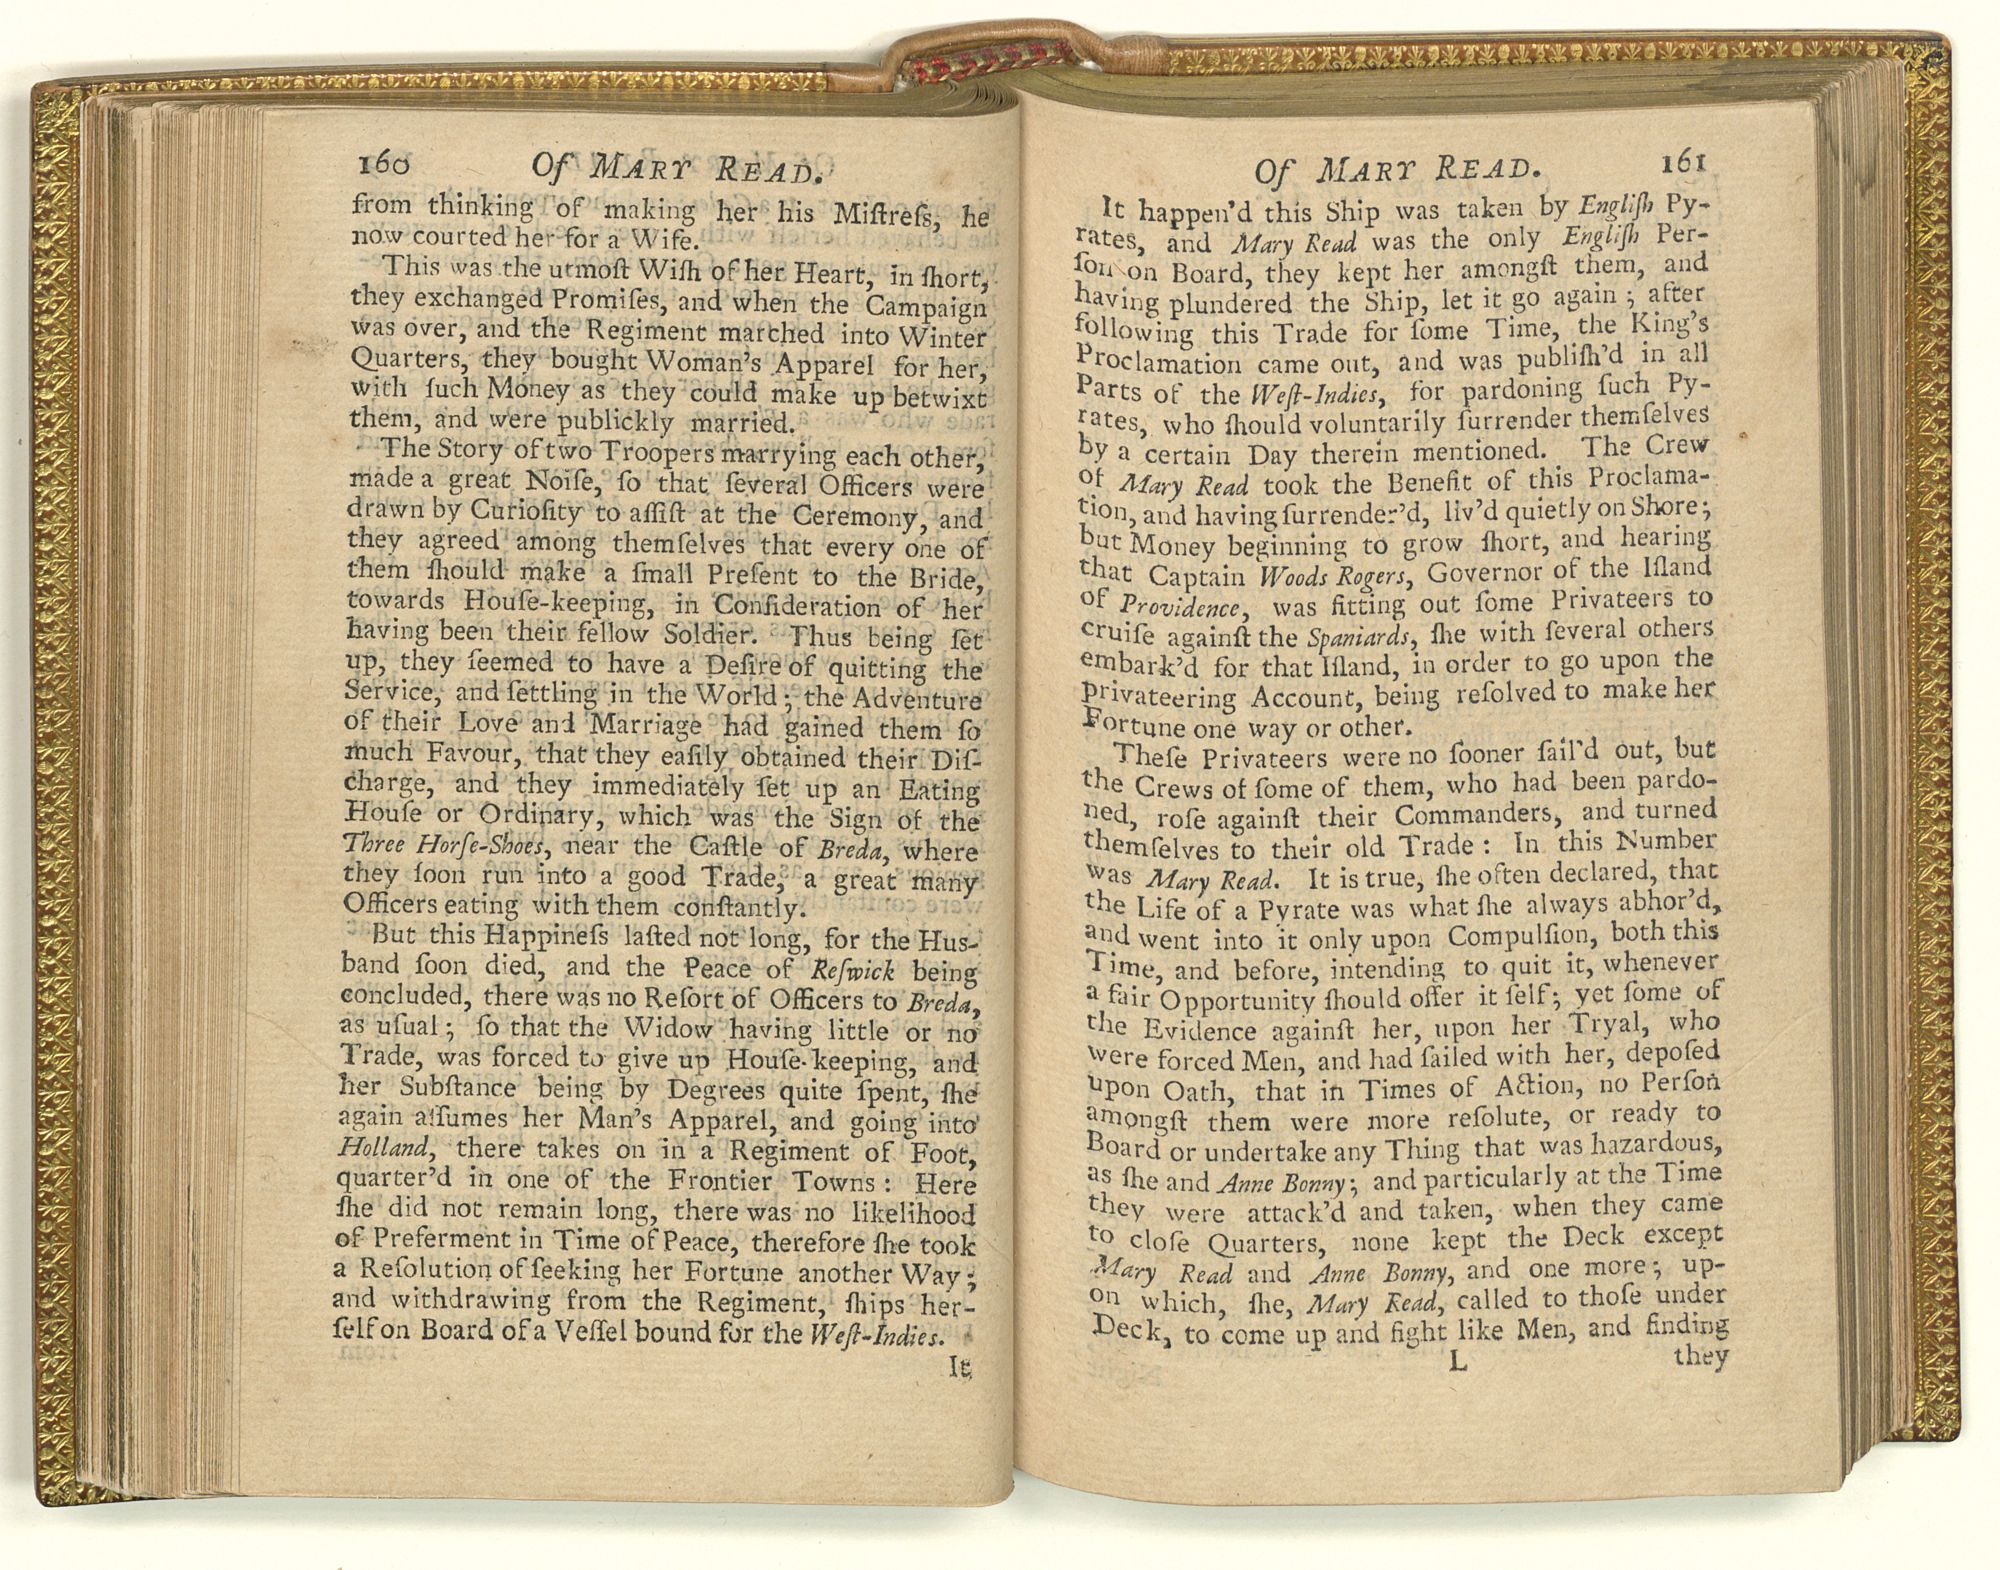 160 Of MARY READ.
from thinking of making her his Miſtreſs, he
now courted her for a Wife.
This was the utmoſt Wiſh of her Heart, in ſhort,
they exchanged Promiſes, and when the Campaign
was over, and the Regiment marched into Winter
Quarters, they bought Woman's Apparel for her,
with ſuch Money as they could make up betwixt
them, and were publickly married.
The Story of two Troopers marrying each other,
made a great Noiſe, ſo that ſeveral Officers were
drawn by Curioſity to aſſiſt at the Ceremony, and
they agreed among themſelves that every one of
them ſhould make a ſmall Preſent to the Bride,
towards Houſe-keeping, in Conſideration of her
having been their fellow Soldier. Thus being ſet
up, they ſeemed to have a Deſire of quitting the
Service, and ſettling in the World; the Adventure
of their Love and Marriage had gained them ſo
much Favour, that they eaſily obtained their Diſ-
charge, and they immediately ſet up an Eating
Houſe or Ordinary, which was the Sign of the
Three Horſe-Shoes, near the Caſtle of Breda, where
they ſoon run into a good Trade, a great many
Officers eating with them conſtantly.
But this Happineſs laſted not long, for the Huſ-
band ſoon died, and the Peace of Reſwick being
concluded, there was no Reſort of Officers to Breda,
as uſual; ſo that the Widow having little or no
Trade, was forced to give up Houſe-keeping, and
her Subſtance being by Degrees quite ſpent, ſhe
again aſſumes her Man's Apparel, and going into
Holland, there takes on in a Regiment of Foot,
quarter'd in one of the Frontier Towns: Here
ſhe did not remain long, there was no likelihood
of Preferment in Time of Peace, therefore ſhe took
a Reſolution of ſeeking her Fortune another Way;
and withdrawing from the Regiment, ſhips her-
ſelf on Board of a Veſſel bound for the Weſt-Indies.
It
Of MARY READ. 161
It happen'd this Ship was taken by Engliſh Py-
rates, and Mary Read was the only Engliſh Per-
ſon on Board, they kept her amongſt them, and
having plundered the Ship, let it go again; after
following this Trade for ſome Time, the King's
Proclamation came out, and was publiſh'd in all
Parts of the Weſt-Indies, for pardoning ſuch Py-
rates, who ſhould voluntarily ſurrender themſelves
by a certain Day therein mentioned. The Crew
of Mary Read took the Benefit of this Proclama-
tion, and having ſurrender'd, liv'd quietly on Shore;
but Money beginning to grow ſhort, and hearing
that Captain Woods Rogers, Governor of the Iſland
of Providence, was fitting out ſome Privateers to
cruiſe againſt the Spaniards, ſhe with ſeveral others
embark'd for that Iſland, in order to go upon the
privateering Account, being reſolved to make her
Fortune one way or other.
Theſe Privateers were no ſooner ſail'd out, but
the Crews of ſome of them, who had been pardo-
ned, roſe againſt their Commanders, and turned
themſelves to their old Trade: In this Number
was Mary Read. It is true, ſhe often declared, that
the Life of a Pyrate was what ſhe always abhor'd,
and went into it only upon Compulſion, both this
Time, and before, intending to quit it, whenever
a fair Opportunity ſhould offer it ſelf; yet ſome of
the Evidence againſt her, upon her Tryal, who
were forced Men, and had ſailed with her, depoſed
upon Oath, that in Times of Action, no Perſon
amongſt them were more reſolute, or ready to
Board or undertake any Thing that was hazardous,
as ſhe and Anne Bonny; and particularly at the Time
they were attack'd and taken, when they came
to cloſe Quarters, none kept the Deck except
Mary Read and Anne Bonny, and one more; up-
on which, ſhe, Mary Read, called to thoſe under
Deck, to come up and fight like Men, and finding
L they